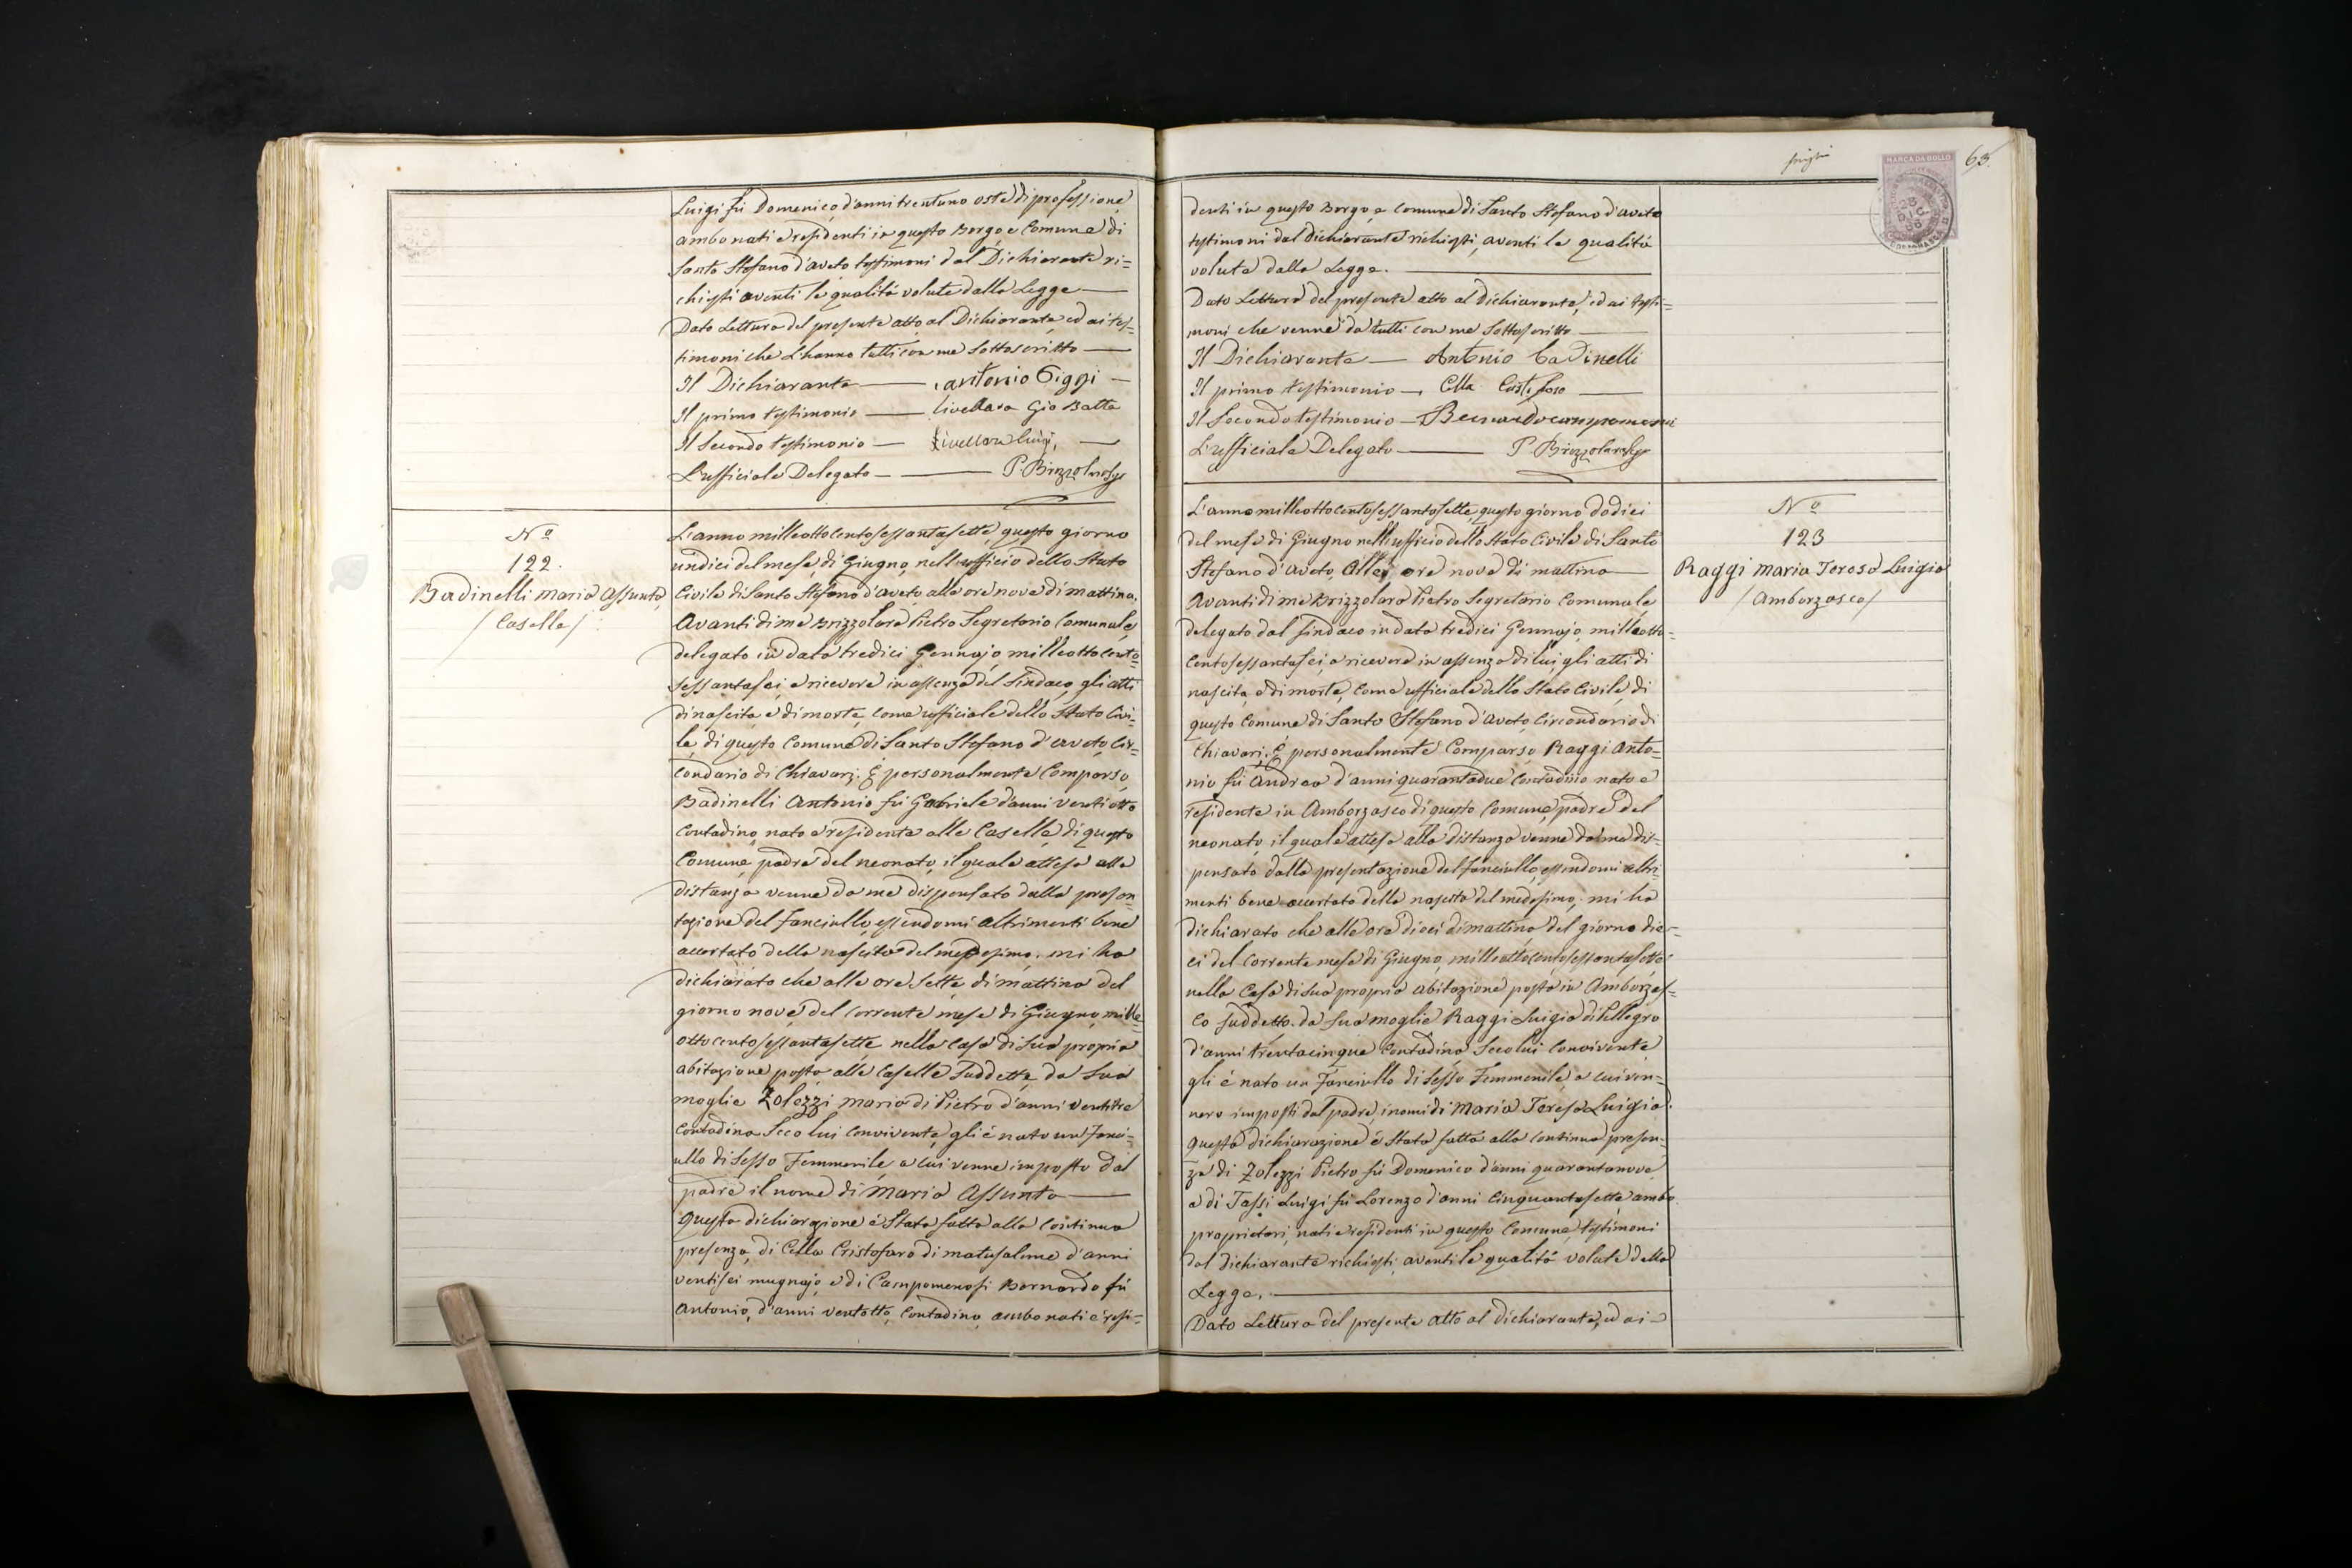 Luigi fù Domenico, d'anni trentuno oste di professione
ambo nati e residenti in questo Borgo e Comune di
Santo Stefano d'aveto testimoni dal Dichiarante ri=
chiesti aventi le qualità volute dalla Legge
Dato Lettura del presente atto al Dichiarante, ed ai tes=
timoni che L'hanno tutti con me Sottoscritto
Il Dichiarante antonio
Il primo testimonio Livellara Gio Batta
Il Secondo testimonio Livellara luigi,
L'ufficiale Delegato P. Brizzolara Seg
Nº
122.
Badinelli Maria Assunta
/ Caselle /
L'anno milleottocentosessantasette, questo giorno
undici del mese di Giugno, nell'ufficio dello Stato
Civile di Santo Stefano d'aveto, alle ore nove di mattina.
Avanti di me Brizzolara Pietro Segretario Comunale,
delegato in data tredici Gennajo, milleottocento=
sessantasei, a ricevere in assenza del Sindaco, gli atti
di nascita e di morte, come ufficiale dello Stato Civi=
le, di questo Comune di Santo Stefano d'aveto, Cir=
condario di Chiavari. È personalmente Comparso,
Badinelli Antonio fù Gabriele d'anni ventiotto
Contadino, nato e residente alle Caselle, di questo
Comune, padre del neonato, il quale attesa alla
distanza venne da me dispensato dalla presen=
tazione del fanciullo, essendomi altrimenti bene
accertato della nascita del medesimo, mi ha
dichiarato che alle ore Sette, di mattina del
giorno nove del corrente mese di Giugno, mille=
ottocentosessantasette, nella Casa di Sua propria
abitazione, posta alle Caselle Suddette, da Sua
moglie Zolezzi Maria di Pietro d'anni ventitre
Contadina Seco lui convivente, gli è nato un Fanci=
ullo di Sesso Femmenile, a cui venne imposto dal
padre il nome di Maria Assunta
Questa dichiarazione è Stata fatta alla continua
presenza, di Cella Cristofaro di Matusaleme d'anni
ventisei mugnajo, e di Campomenosi Bernardo fù
Antonio, d'anni ventotto, Contadino, ambo nati e resi=
63.
MARCA DA BOLLO
denti in questo Borgo, e Comune di Santo Stefano d'aveto
testimoni dal Dichiarante richiesti, aventi le qualità
volute dalla Legge.
Dato Lettura del presente atto al Dichiarante, ed ai testi=
moni che venne da tutti con me Sottoscritto
Il Dichiarante Antonio Badinelli
Il primo testimonio Cella
Il Secondo testimonio Bernardo campomenosi
L'ufficiale Delegato P. Brizzolara Seg
Nº
123
Raggi Maria Teresa Luigia
/ Amborzasco /
L'anno milleottocentosessantasette, questo giorno dodici
del mese di Giugno nell'ufficio dello Stato Civile di Santo
Stefano d'Aveto, Alle ore nove di mattina
Avanti di me Brizzolara Pietro Segretario Comunale,
delegato dal Sindaco in data tredici Gennajo, milleotto=
centosessantasei, a ricevere in assenza di lui, gli atti di
nascita, e di morte, come ufficiale dello Stato Civile, di
questo Comune di Santo Stefano d'Aveto, Circondario di
Chiavari. È personalmente Comparso, Raggi Anto=
nio fù Andrea d'anni quarantadue Contadino nato e
residente in Amborzasco di questo Comune, padre del
neonato, il quale attesa alla distanza venne da me dis=
pensato dalla presentazione del fanciullo, essendomi altri=
menti bene accertato della nascita del medesimo, mi ha
dichiarato che alle ore dieci di mattina del giorno die=
ci del Corrente mese di Giugno, milleottocentosessantasette
nella Casa di Sua propria abitazione posta in Amborzas=
co suddetto, da Sua moglie Raggi Luigia di Pellegro
d'anni trentacinque Contadina Seco lui Convivente,
gli è nato un Fanciullo di Sesso Femmenile, a cui ven=
nero imposti dal padre i nomi di Maria Teresa Luigia.
Questa dichiarazione è Stata fatta alla continua presen=
za di Zolezzi Pietro fù Domenico d'anni quarantanove,
e di Tassi Luigi fù Lorenzo d'anni Cinquantasette ambo
proprietari, nati e residenti in questo Comune, testimoni
dal dichiarante richiesti, aventi le qualità volute dalla
Legge.
Dato Lettura del presente atto al dichiarante, ed ai